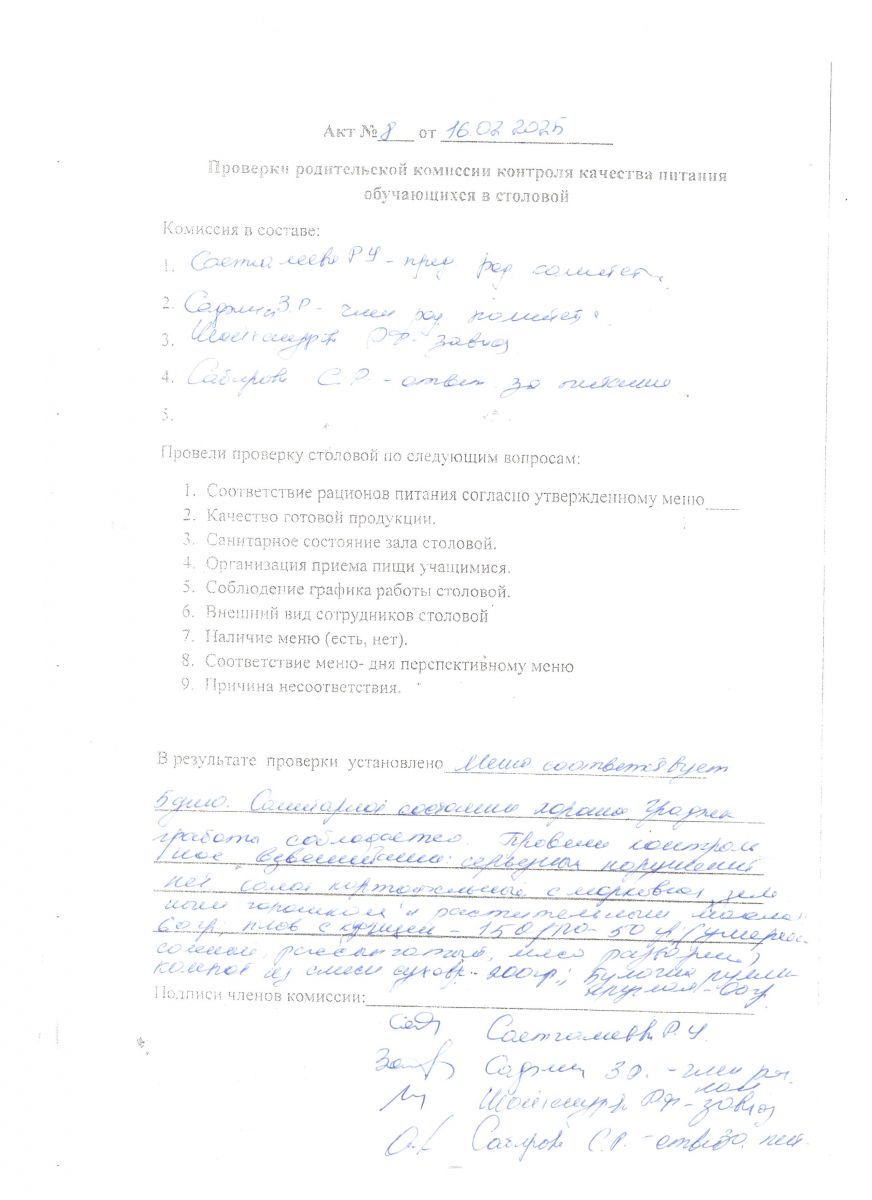 Акт № 8 от 16.02 2025
Проверки родительской комиссии контроля качества питания
обучающихся в столовой
Комиссия в составе:
1. Саетгалеева Р У - пред род комитет
2. З.Р - член род комитет
3. РФ - завхоз
4. Сабирова С.Р. - ответ за питание
5.
Провели проверку столовой по следующим вопросам:
1. Соответствие рационов питания согласно утвержденному меню
2. Качество готовой продукции.
3. Санитарное состояние зала столовой.
4. Организация приема пищи учащимися.
5. Соблюдение графика работы столовой.
6. Внешний вид сотрудников столовой
7. Наличие меню (есть, нет).
8. Соответствие меню- дня перспективному меню
9. Причина несоответствия.
В результате проверки установлено Меню соответствует
5 дню. Санитарное состояние хорошо График
работа соблюдается. Провели контроль
ное взвешивание: серьезных нарушений
нет салат картофельный с морковью, зеле
ным горошком и растительным маслом
60 гр; плов с курицей - 150/ 50 гр (умерено
соленый, рассыпчатый, мясо разварен)
компот из смеси сухофр - 200гр; Булочка
круглая - 60 гр
Подписи членов комиссии:
Саетгалеева Р.У.
З Р. - член род.
ком
РФ - завхоз
Сабирова С.Р. - отв за. пит.